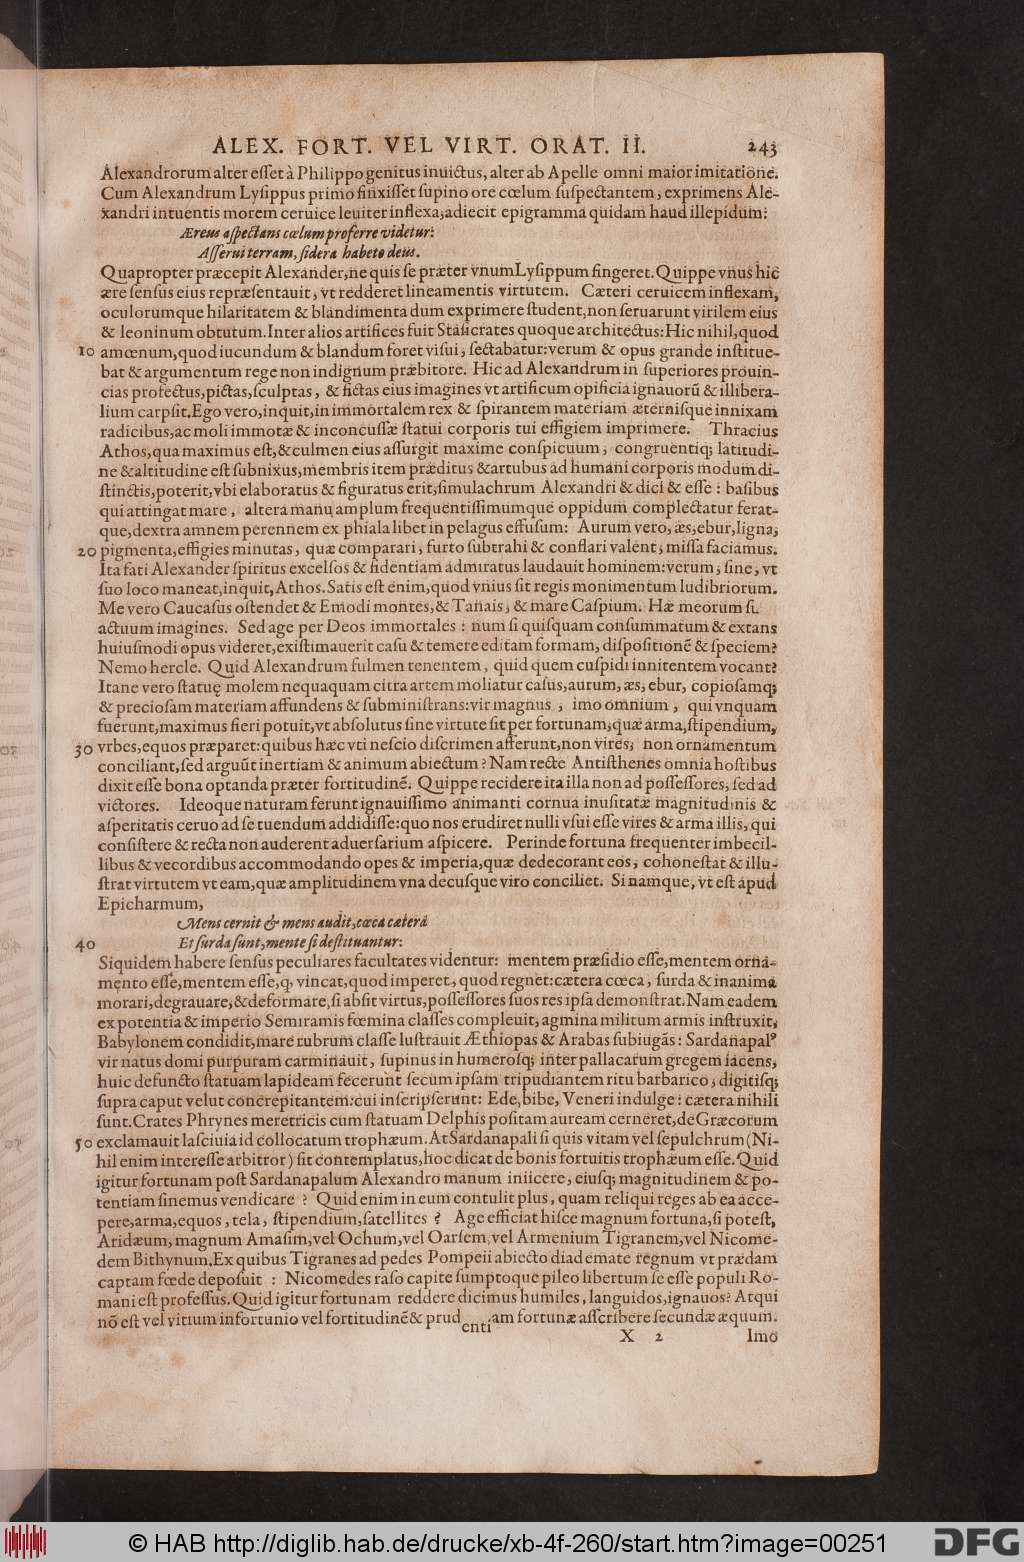 ALEX. FORT. VEL VIRT. ORAT. II. 243
Alexandrorum alter eſſet à Philippo genitus inuictus, alter ab Apelle omni maior imitatione.
Cum Alexandrum Lyſippus primo finxiſſet ſupino ore cœlum ſuſpectantem, exprimens Ale-
xandri intuentis morem ceruice leuiter inflexa, adiecit epigramma quidam haud illepidum:
Æreus aſpectans cœlum proferre videtur:
Aſſerui terram, ſidera habeto deus.
Quapropter præcepit Alexander, ne quis ſe præter vnum Lyſippum fingeret. Quippe vnus hic
ære ſenſus eius repræſentauit, vt redderet lineamentis virtutem. Cæteri ceruicem inflexam,
oculorumque hilaritatem & blandimenta dum exprimere ſtudent, non ſeruarunt virilem eius
& leoninum obtutum. Inter alios artifices fuit Staſicrates quoque architectus: Hic nihil, quod
10 amœnum, quod iucundum & blandum foret viſui, ſectabatur: verum & opus grande inſtitue-
bat & argumentum rege non indignum præbitore. Hic ad Alexandrum in ſuperiores prouin-
cias profectus, pictas, ſculptas, & fictas eius imagines vt artificum opificia ignauorū & illibera-
lium carpſit. Ego vero, inquit, in immortalem rex & ſpirantem materiam æterniſque innixam
radicibus, ac moli immotæ & inconcuſſæ ſtatui corporis tui effigiem imprimere. Thracius
Athos, qua maximus eſt, & culmen eius aſſurgit maxime conſpicuum, congruentiq; latitudi-
ne & altitudine eſt ſubnixus, membris item præditus & artubus ad humani corporis modum di-
ſtinctis, poterit, vbi elaboratus & figuratus erit, ſimulachrum Alexandri & dici & eſſe: baſibus
qui attingat mare, altera manu amplum frequentiſſimumque oppidum complectatur ferat-
que, dextra amnem perennem ex phiala libet in pelagus effuſum: Aurum vero, æs, ebur, ligna,
20 pigmenta, effigies minutas, quæ comparari, furto ſubtrahi & conflari valent, miſſa faciamus.
Ita fati Alexander ſpiritus excelſos & fidentiam admiratus laudauit hominem: verum, ſine, vt
ſuo loco maneat, inquit, Athos. Satis eſt enim, quod vnius ſit regis monimentum ludibriorum.
Me vero Caucaſus oſtendet & Emodi montes, & Tanais, & mare Caſpium. Hæ meorum ſu.
actuum imagines. Sed age per Deos immortales: num ſi quiſquam conſummatum & extans
huiuſmodi opus videret, exiſtimauerit caſu & temere editam formam, diſpoſitionē & ſpeciem?
Nemo hercle. Quid Alexandrum fulmen tenentem, quid quem cuſpidi innitentem vocant?
Itane vero ſtatuę molem nequaquam citra artem moliatur caſus, aurum, æs, ebur, copioſamq;
& precioſam materiam affundens & ſubminiſtrans: vir magnus, imo omnium, qui vnquam
fuerunt, maximus fieri potuit, vt abſolutus ſine virtute ſit per fortunam, quæ arma, ſtipendium,
30 vrbes, equos præparet: quibus hæc vti neſcio diſcrimen afferunt, non vires, non ornamentum
conciliant, ſed arguūt inertiam & animum abiectum? Nam recte Antiſthenes omnia hoſtibus
dixit eſſe bona optanda præter fortitudinē. Quippe recidere ita illa non ad poſſeſſores, ſed ad
victores. Ideoque naturam ferunt ignauiſſimo animanti cornua inuſitatæ magnitudinis &
aſperitatis ceruo ad ſe tuendum addidiſſe: quo nos erudiret nulli vſui eſſe vires & arma illis, qui
conſiſtere & recta non auderent aduerſarium aſpicere. Perinde fortuna frequenter imbecil-
libus & vecordibus accommodando opes & imperia, quæ dedecorant eos, cohoneſtat & illu-
ſtrat virtutem vt eam, quæ amplitudinem vna decuſque viro conciliet. Si namque, vt eſt apud
Epicharmum,
Mens cernit & mens audit, cœca cætera
40 Et ſurda ſunt, mente ſi deſtituantur:
Siquidem habere ſenſus peculiares facultates videntur: mentem præſidio eſſe, mentem orna-
mento eſſe, mentem eſſe, q, vincat, quod imperet, quod regnet: cætera cœca, ſurda & inanima
morari, degrauare, & deformare, ſi abſit virtus, poſſeſſores ſuos res ipſa demonſtrat. Nam eadem
ex potentia & imperio Semiramis fœmina claſſes compleuit, agmina militum armis inſtruxit,
Babylonem condidit, mare rubrum claſſe luſtrauit Æthiopas & Arabas ſubiugās: Sardanapalꝰ
vir natus domi purpuram carminauit, ſupinus in humeroſq; inter pallacarum gregem iacens,
huic defuncto ſtatuam lapideam fecerunt ſecum ipſam tripudiantem ritu barbarico, digitiſq;
ſupra caput velut concrepitantem: cui inſcripſerunt: Ede, bibe, Veneri indulge: cætera nihili
ſunt. Crates Phrynes meretricis cum ſtatuam Delphis poſitam auream cerneret, de Græcorum
50 exclamauit laſciuia id collocatum trophæum. At Sardanapali ſi quis vitam vel ſepulchrum (Ni-
hil enim intereſſe arbitror) ſit contemplatus, hoc dicat de bonis fortuitis trophæum eſſe. Quid
igitur fortunam poſt Sardanapalum Alexandro manum iniicere, eiuſq; magnitudinem & po-
tentiam ſinemus vendicare? Quid enim in eum contulit plus, quam reliqui reges ab ea acce-
pere, arma, equos, tela, ſtipendium, ſatellites? Age efficiat hiſce magnum fortuna, ſi poteſt,
Aridæum, magnum Amaſim, vel Ochum, vel Oarſem, vel Armenium Tigranem, vel Nicome-
dem Bithynum. Ex quibus Tigranes ad pedes Pompeii abiecto diademate regnum vt prædam
captam fœde depoſuit: Nicomedes raſo capite ſumptoque pileo libertum ſe eſſe populi Ro-
mani eſt profeſſus. Quid igitur fortunam reddere dicimus humiles, languidos, ignauos? Atqui
nō eſt vel vitium infortunio vel fortitudinē & prudentiam fortunæ aſſcribere ſecundæ æquum.
X 2 Imo
© HAB http://diglib.hab.de/drucke/xb-4f-260/start.htm?image=00251
DFG